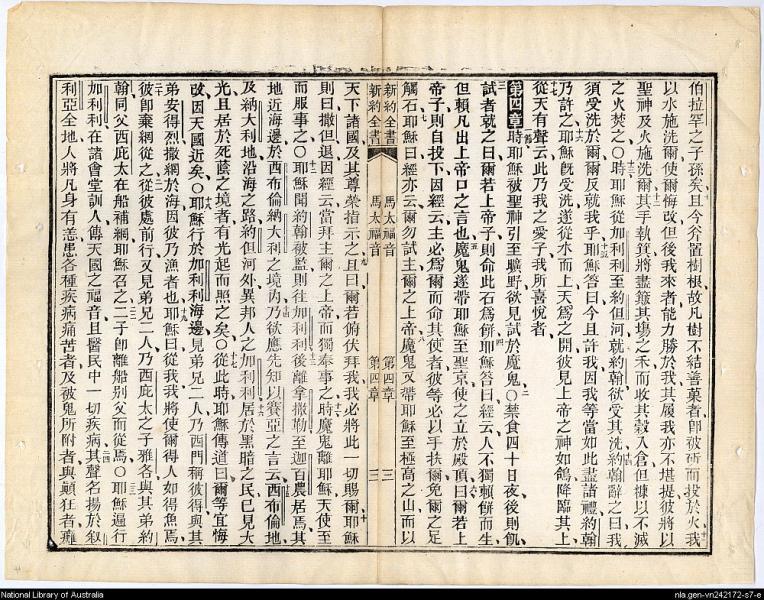 伯拉罕之子孫矣且今斧置樹根故凡樹不結善菓者即被斫而投於火我
以水施洗爾使爾悔改但後我來者能力勝於我其履我亦不堪提彼將以
聖神及火施洗爾其手執箕將盡簸其場之禾而收其穀入倉但糠以不滅
之火焚之○時耶穌從加利利至約但河就約翰欲受其洗約翰辭之曰我
須受洗於爾爾反就我乎耶穌答曰今且許我因我等當如此盡諸禮約翰
乃許之耶穌旣受洗遂從水而上天爲之開彼見上帝之神如鴿降臨其上
從天有聲云此乃我之愛子我所喜悅者
第四章時耶穌被聖神引至曠野欲見試於魔鬼○禁食四十日夜後則飢
試者就之曰爾若上帝子則命此石爲餅耶穌答曰經云人不獨賴餅而生
但賴凡出上帝口之言也魔鬼遂帶耶穌至聖京使之立於殿頂曰爾若上
帝子則自投下因經云主必爲爾而命其使者彼等必以手扶爾免爾之足
觸石耶穌曰經亦云爾勿試主爾之上帝魔鬼又帶耶穌至極高之山而以
新約全書 馬太福音 第四章 三
新約全書 馬太福音 第四章 三
天下諸國及其尊榮指示之且曰爾若俯伏拜我我必將此一切賜爾耶穌
則曰撒但退因經云當拜主爾之上帝而獨奉事之時魔鬼離耶穌天使至
而服事之○耶穌聞約翰被監則往加利利後離拿撒勒至迦百農居焉其
地近海邊於西布倫納大利之境內乃欲應先知以賽亞之言云西布倫地
及納大利地沿海之路約但河外異邦人之加利利居於黑暗之民已見大
光且居於死蔭之境者有光起而照之矣○從此時耶穌傳道曰爾等宜悔
改因天國近矣○耶穌行於加利利海邊見弟兄二人乃西門稱彼得與其
弟安得烈撒網於海因彼乃漁者也耶穌曰從我我將使爾得人如得魚焉
彼卽棄網從之從彼處前行又見弟兄二人乃西庇太之子雅各與其弟約
翰同父西庇太在船補網耶穌召之二子卽離船别父而從焉○耶穌遍行
加利利在諸會堂訓人傳天國之福音且醫民中一切疾病其聲名揚於叙
利亞全地人將凡身有恙患各種疾病痛苦者及被鬼所附者與癲狂者癱
National Library of Australia
nla.gen-vn242172-s7-e